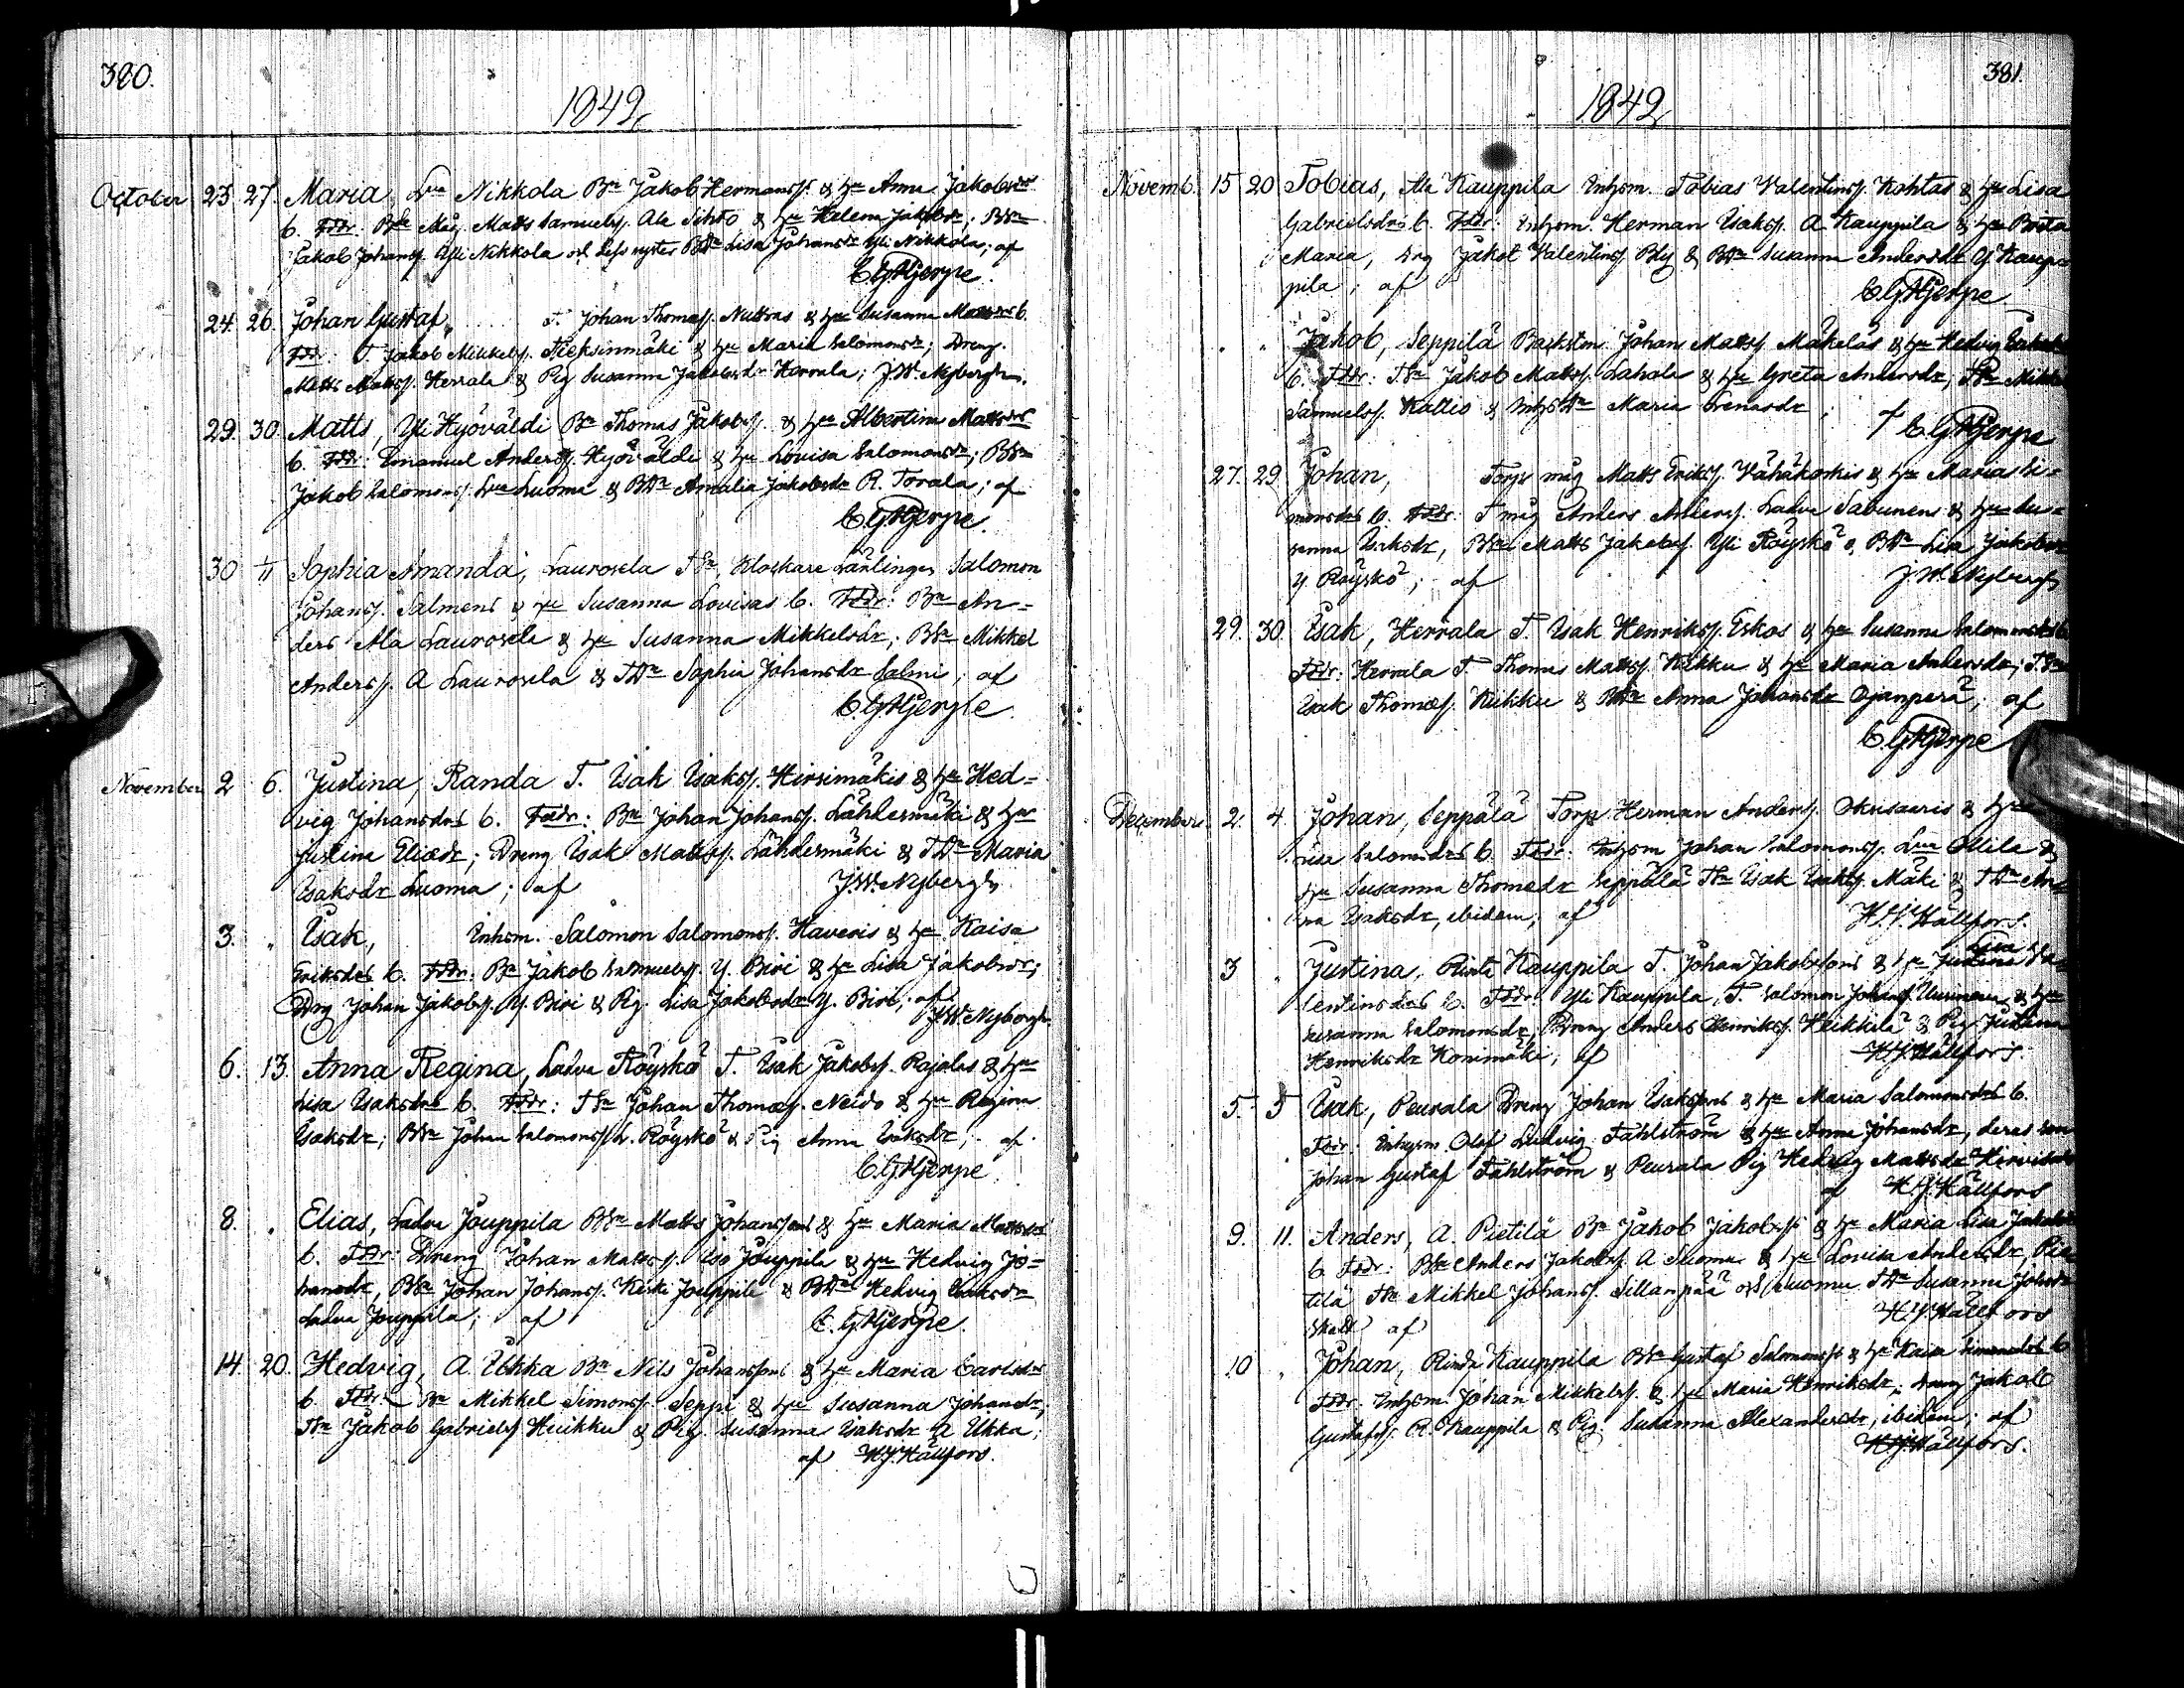 380.
1842.
October 23. 27. Maria, Lua Nikkola Bn Jakob Hermanss. & hu Anna Jakobsdrs
b. Fddr: Bn Måg. Matts Samuelss. Ala Sihto & hu Helena Jakobsdr; BSn
Jakob Johanss. Yli Nikkola och dess syster BDr Lisa Johansdr Yli Nikkola; af
C.G. Hjerpe.
24. 26. Johan Gustaf, T. Johan Thomass. & hu Susanna Mattsdrs b.
Fddr: T. Jakob Mikkelss. & hu Maria Salomonsdr; Dreng.
Matts Mattss. Herrala & Pig Susanna Jakobsdr Herrala; J.W. Nybergh.
29. 30. Matts, Yli Hyöväldi Bn Thomas Jakobss. & hu Albertina Mattsdrs
b. Fddr: Emanuel Anderss. Hyöväldi & hu Lovisa Salomonsdr; BSn
Jakob Salomonss. Lua Luoma & BDr Amalia Jakobsdr R. Torala; af
C.G. Hjerpe.
30 1/11 Sophia Amanda, Laurosela TSn, Klockare Lärlingen Salomon
Johanss. Salmens & hu Susanna Lovisas b. Fddr: Bn An=
ders Ala Laurosela & hu Susanna Mikkelsdr; BSn Mikkel
Anderss. A Laurosela & TDr Sophia Johansdr Salmi; af
C.G. Hjerpe.
November 2 6. Justina, Randa T. Isak Isakss. Hirsimäkis & hu Hed=
vig Johansdrs b. Fddr: Bn Johan Johanss. Lähdesmäki & hu
Justina Eliædr; Dreng Isak Mattss. Lähdesmäki & TDr Maria
Isaksdr Luoma; af J.W. Nybergh.
3. " Isak, Inhsm. Salomon Salomonss. Haveris & hu Kaisa
Eriksdrs b. Fddr: Bn Jakob Samuelss. Y. Biri & hu Lisa Jakobsdr;
Drg Johan Jakobss. Y. Biri & Pig. Lisa Jakobsdr Y. Biri; af
J.W. Nybergh.
6. 13. Anna Regina, Ladva Röyskö T. Isak Jakobss. Rajalas & hu
Lisa Isaksdrs b. Fddr: TSn Johan Thomass. Neiro & hu Regina
Isaksdr; BSn Johan Salomonss. L. Röyskö & Pig Anna Isaksdr; af
C.G. Hjerpe
8. " Elias, Ladva Jouppila BSn Matts Johanssons & hu Maria Mattsdrs
b. Fddr: Dreng Johan Mattss. Iso Jouppila & hu Hedvig Jo=
hansdr, BSn Johan Johanss. Keski Jouppila & BDr Hedvig Isaksdr
Ladva Jouppila; af C.G. Hjerpe.
14. 20. Hedvig, A. Ukka Bn Nils Johanssons & hu Maria Carlsdrs
b. Fddr: Bn Mikkel Simonss. Seppi & hu Susanna Johansdr;
TSn Jakob Gabrielss. Huikku & Pig. Susanna Isaksdr A Ukka;
af H.J. Hällfors.
381.
1842.
Novemb. 15 20 Tobias, Ala Kauppila Inhsm. Tobias Valentinss. Kohtas & hu Lisa
Gabrielsdrs b. Fddr: Inhsm. Herman Isakss. A Kauppila & hu Breta
Maria, Drg Jakob Valentinss. & BDr Susanna Andersdr Y Kaup=
pila; af C.G. Hjerpe
" " Jakob, Seppilä Backstm. Johan Mattss. Mäkeläs & hu Hedvig
b. Fddr: TSn Jakob Mattss. Lahola & hu Greta Andersdr; TSn Mikkel
Samuelss. Kallio & InhsDr Maria; af
C.G. Hjerpe
27. 29. Johan, Torps måg Matts Erikss. Vähäkorkis & hu Maria Si=
monsdrs b. Fddr: T måg Anders Anderss. Ladva & hu Su=
sanna Isaksdr, BSn Matts Jakobss. Yli Röyskö & BDr Lisa Jakobsdr
Y. Röyskö; af J.W. Nybergh
29. 30. Isak, Herrala T. Isak Henrikss. Eskos & hu Susanna Salomonsdrs b.
Fddr: Herrala T. Thomas Mattss. Kukku & hu Maria Andersdr; TSn
Isak Thomass. Kukku & BDr Anna Johansdr Ojanperä; af
C.G. Hjerpe
December 2. 4. Johan, Seppälä Torp. Herman Anderss. & hu
Salomonsdrs b. Fddr: Inhsm Johan Salomonss. Lua Ollila &
hu Susanna Thomædr Seppälä TSn Isak Isakss. Mäki & TDr An=
na Isaksdr, ibidem; af H.J. Hällfors.
3 " Justina, Rinta Kauppila T. Johan Jakobssons & hu Lisa Va=
lentinsdrs b. Fddr: Yli Kauppila, T. Salomon Johanss. & hu
Susanna Salomonsdr, Dreng Anders Henrikss. Heikkilä & Pig Justina
Henriksdr Konimäki; af H.J. Hällfors.
5. 5 Isak, Peurala Dreng Johan Isakssons & hu Maria Salomonsdrs b.
Fddr: Inhysm Olof Ludvig Fahlström & hu Anna Johansdr, deras son
Johan Gustaf Fahlström & Peurala Pig Hedvig Mattsdr
af H.J. Hällfors
9. 11. Anders, A. Pietilä Bn Jakob Jakobss. & hu Maria Lisa Jakobsdrs
b. Fddr: BSn Anders Jakobss. A Luoma & hu Lovisa Andersdr, Pie
tilä TSn Mikkel Johanss. Sillanpää och Luoma TDr Susanna Johansdr
af H.J. Hällfors
10 " Johan, Rinta Kauppila BSn Gustaf Salomonss. & hu Kaisa Simonsdrs b
Fddr: Inhsm. Johan Mikkelss. & hu Maria Henriksdr, Dreng Jakob
Gustafss. R. Kauppila & Pig. Susanna Alexandersdr, ibidem; af
H.J. Hällfors.